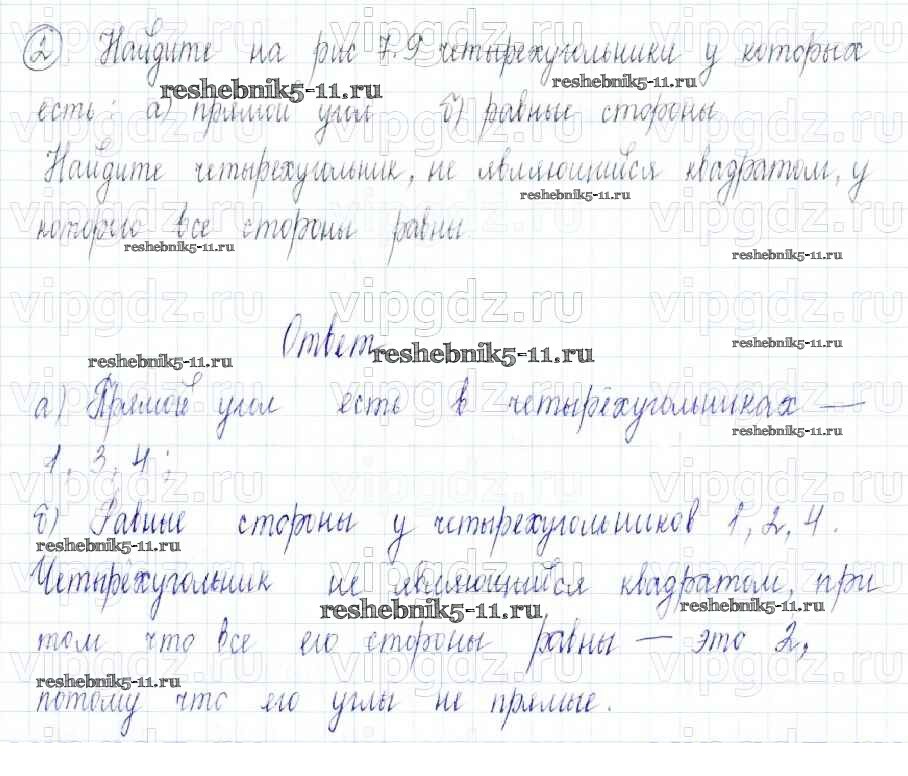 2) Найдите на рис 7.9 четырехугольники у которых
есть: а) прямой угол б) равные стороны
Найдите четырехугольник, не являющийся квадратом, у
которого все стороны равны.
Ответ
а) Прямой угол есть в четырёхугольниках —
1, 3, 4;
б) Равные стороны у четырехугольников 1, 2, 4.
Четырёхугольник не являющийся квадратом, при
том что все его стороны равны — это 2,
потому что его углы не прямые.
vipgdz.ru
reshebnik5-11.ru